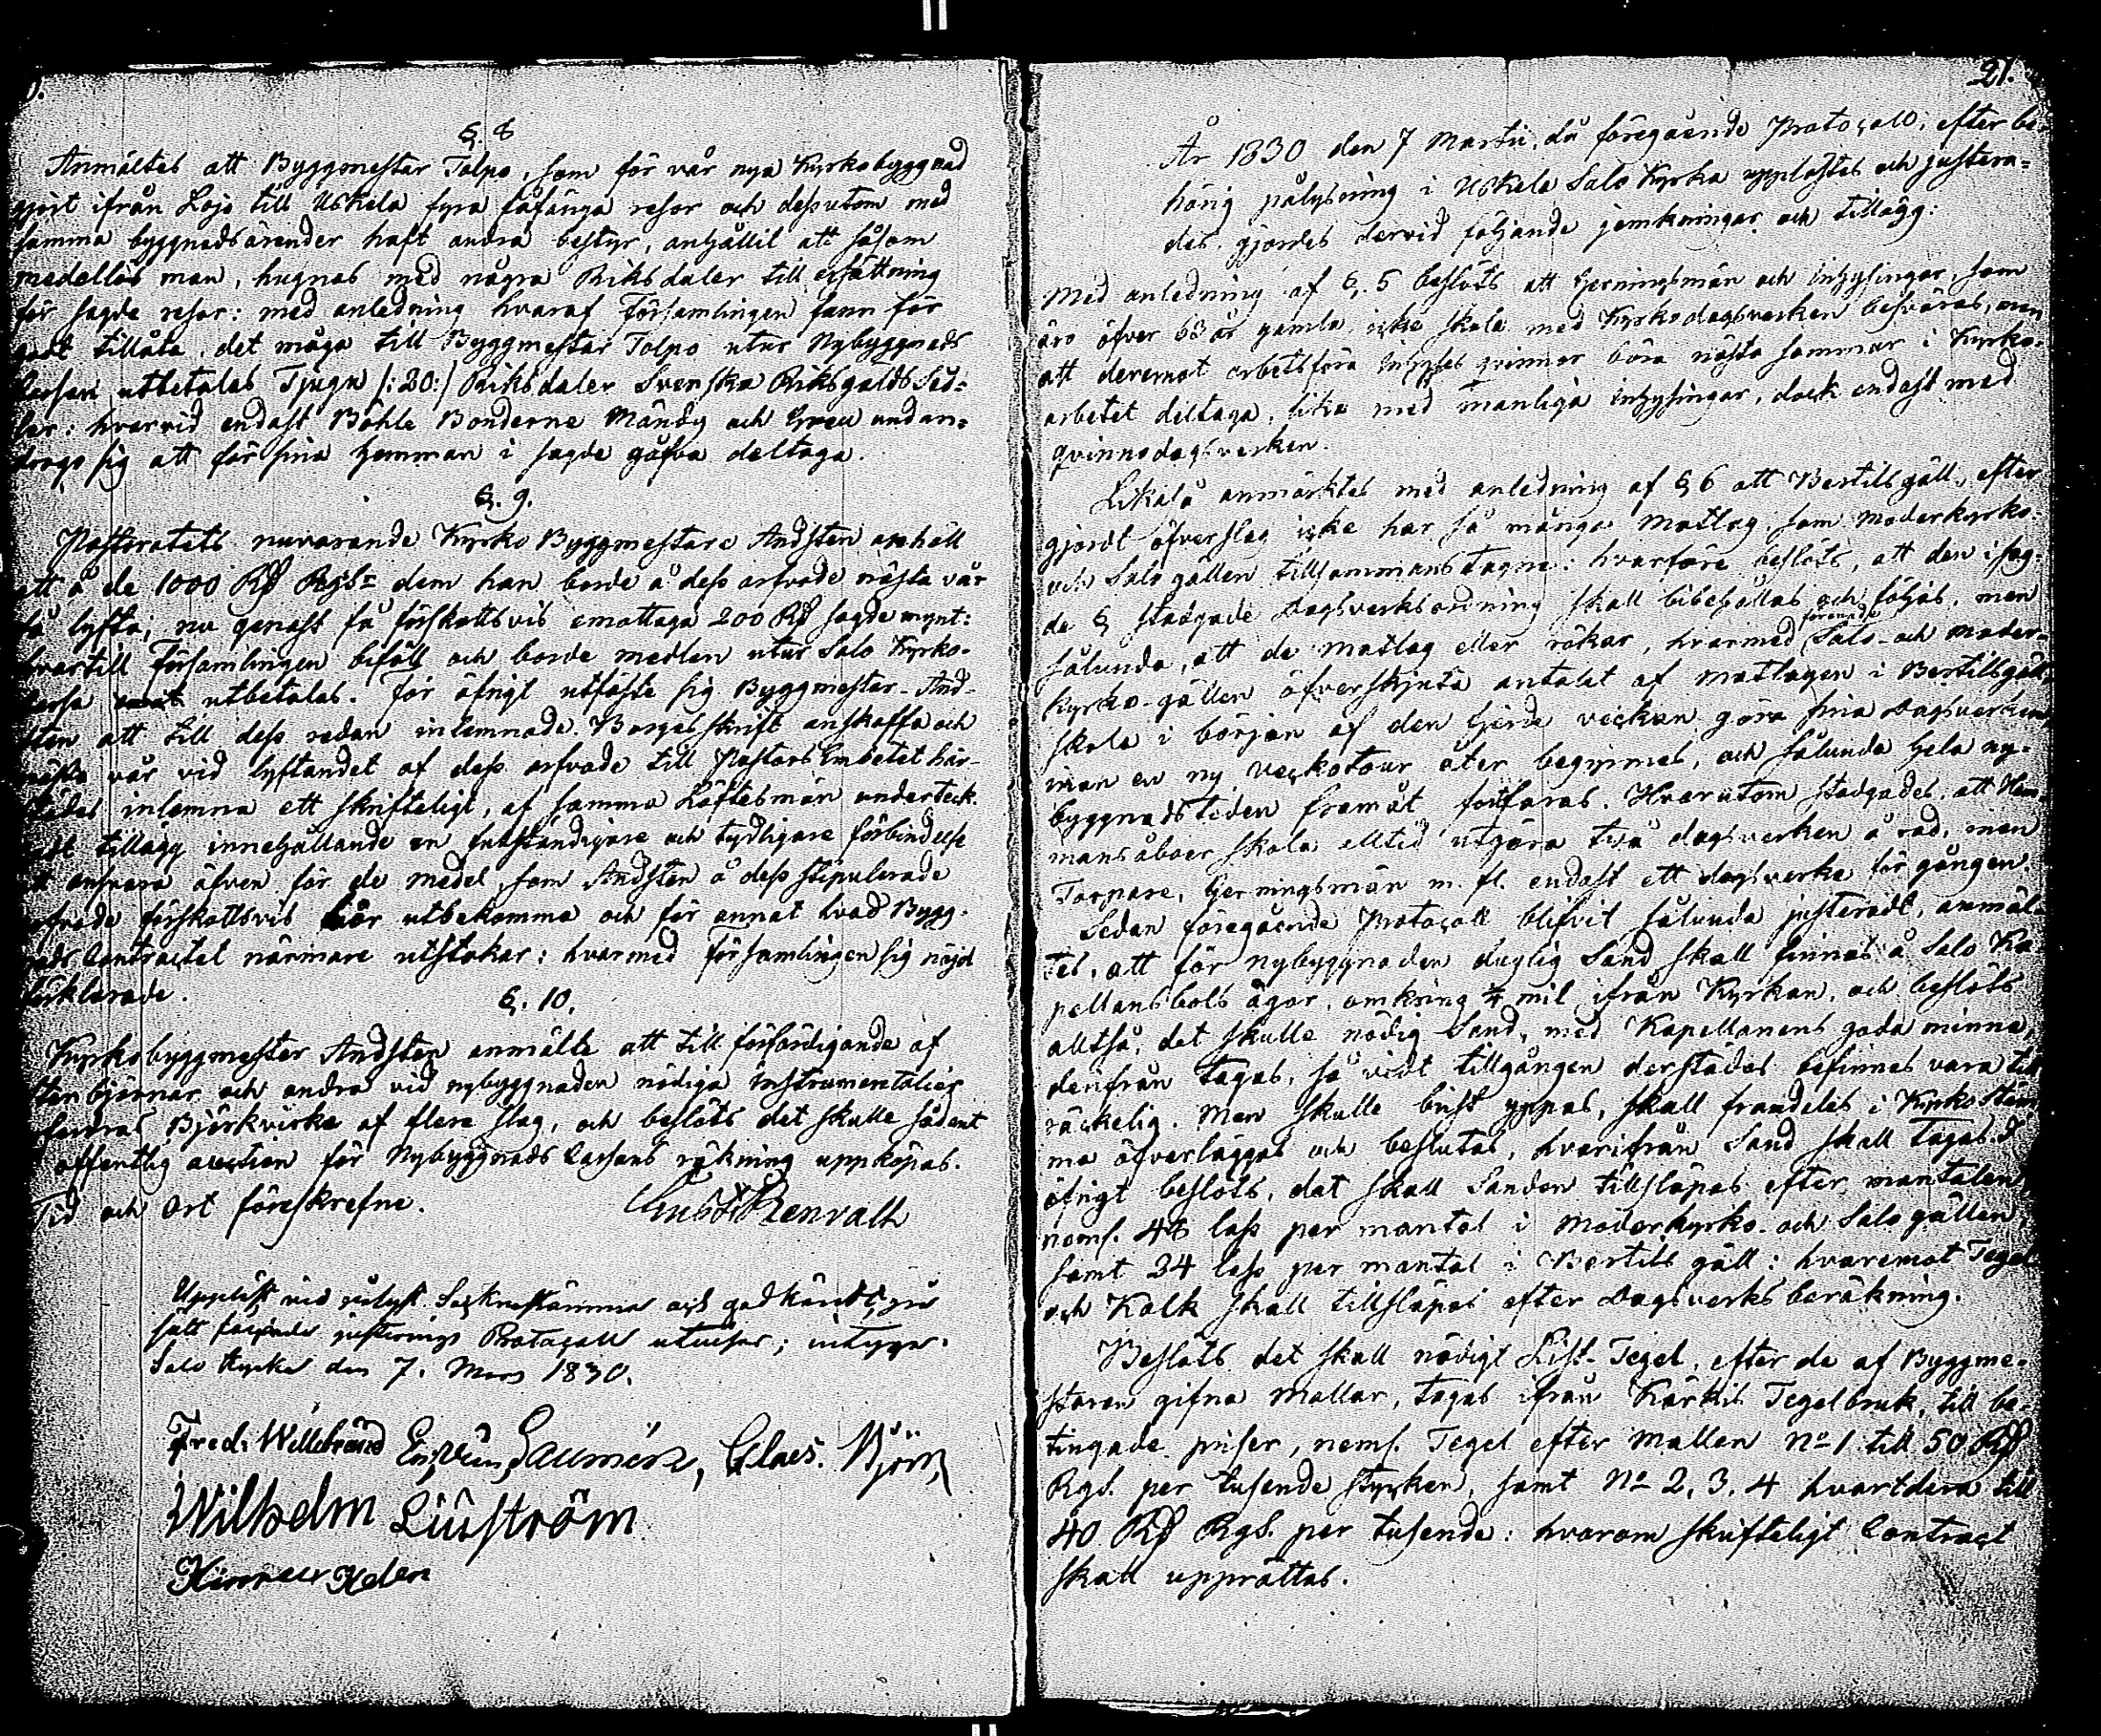 §. 8
Anmältes att Byggmestar Tolpo, som för vår nya Kyrkobyggnad
gjort ifrån Lojo till Uskela fyra fåfänga resor och dessutom med
samma byggnadsärender haft andra bestyr, anhållit att såsom
medellös man, hugnas med några Riksdaler till ersättning
för sagde resor: med anledning hvaraf Församlingen fann för
godt tillåta, det måga till Byggmestar Tolpo utur Nybyggnads
Cassan utbetalas Tjugu /:20:/ Riksdaler Svenska Riksgälds Sed-
lar: hvarvid endast Böhle Bönderne Mandy och undan-
drogo sig att för sina hemman i sagde gåfva deltaga.
§. 9.
Pastoratets nuvarande Kyrko Byggmestare Andsten anhöll
att å de 1000 Rd Rgs= dem han borde å dess arfvode nästa vår
få lyfta, nu genast få förskottsvis emottaga 200 Rd sagde mynt:
hvartill Församlingen biföll och borde medlen utur Salo Kyrko-
Cassa utbetalas. För öfrigt utfäste sig Byggmestar And-
sten att till dess redan inlemnade Borgesskrift anskaffa och
nästa vår vid lyftandet af dess arfvode till Pastors Embetet här-
städes inlemna ett skrifteligt, af samma Löftesmän underteck-
nadt tillägg innehållande en fullständigare och tydligare förbindelse
att ansvara äfven för de medel, som Andsten å dess stipulerade
arfvode förskottsvis utbekomma och för annat hvad Bygg-
nads Contractet närmare utstakar: hvarmed Församlingen sig nöjd
förklarade.
§. 10.
Kyrkobyggmester Andsten anmälte att till förfärdigande af
stenbjörnar och andra vid nybyggnaden nödiga instrumentalier
fordras Björkvirke af flere slag, och beslöts det skulle sådant
å offentlig auction för Nybyggnads Cassans räkning uppköpas.
Tid och Ort föreskrefne. Gust: Renvall
Uppläst vid pålyst Socknestämma och godkändt på
sätt följande justerings Protocoll utvisar; intyga.
Salo Kyrka den 7. Mars 1830.
Fred: Willebrand Salmén, Claes. Björn
Wilhelm Liuström
21.
År 1830 den 7 Martii, då föregående Protocoll, efter be-
hörig pålysning i Uskela Salo Kyrka upplästes och justera-
des, gjordes dervid följande jemkningar och tillägg:
Med anledning af §. 5 beslöts att Gerningsmän och Inhysingar, som
äro öfver 63 år gamla, icke skola med Kyrkodagsverken besväras, men
att deremot arbetsföra Inhyses qvinnor böra nästa sommar i Kyrko-
arbetet deltaga, lika med manliga inhysingar, dock endast med
qvinnodagsverken.
Likaså anmärktes med anledning af § 6 att Bertils gäll, efter
gjordt öfverslag icke har så många Matlag, som Moderkyrko-
och Salo gällen tillsammans tagne: hvarföre beslöts, att den i sag-
de § stadgade Dagsverksordning skall bibehållas och följas, men
sålunda, att de matlag eller rökar, hvarmed förenade Salo- och Moder-
kyrko-gällen öfverskjuta antalet af matlagen i Bertilsgäll,
skola i början af den tjerde veckan göra sina Dagsverken,
innan en ny veckotour åter begynnes, och sålunda hela ny-
byggnadstiden framåt fortfaras. Hvarutom stadgades, att Hem-
mansåboer skola alltid utgöra två dagsverken å rad, men
Torpare, Gerningsmän m. fl. endast ett dagsverke för gången.
Sedan föregående Protocoll blifvit sålunda justeradt, anmäl-
tes, att för nybyggnaden duglig Sand skall finnas å Salo Ka-
pellansbols ägor, omkring ¼ mil ifrån Kyrkan, och beslöts
alltså, det skulle nödig Sand, med Kapellanens goda minne,
derifrån tagas, så vidt tillgången derstädes befinnes vara till-
räckelig. Men skulle brist yppas, skall framdeles i Kyrkostäm-
ma öfverläggas och beslutas, hvarifrån Sand skall tagas. I
öfrigt beslöts, det skall Sanden tillsläpas efter mantalen
neml. 48 lass per mantal i Moderkyrko- och Salo gällen,
samt 24 lass per mantal i Bertils gäll: hvaremot Tegel
och Kalk skall tillsläpas efter Dagsverks beräkning.
Beslöts det skall nödigt List-Tegel, efter de af Byggme-
staren gifna mallar, tagas ifrån Kärkis Tegelbruk, till be-
tingade priser, neml. Tegel efter Mallen No 1 till 50 Rd
Rgs. per tusende stycken, samt No 2, 3, 4 hvartdera till
40 Rd Rgs. per tusende: hvarom skrifteligt Contract
skall upprättas.